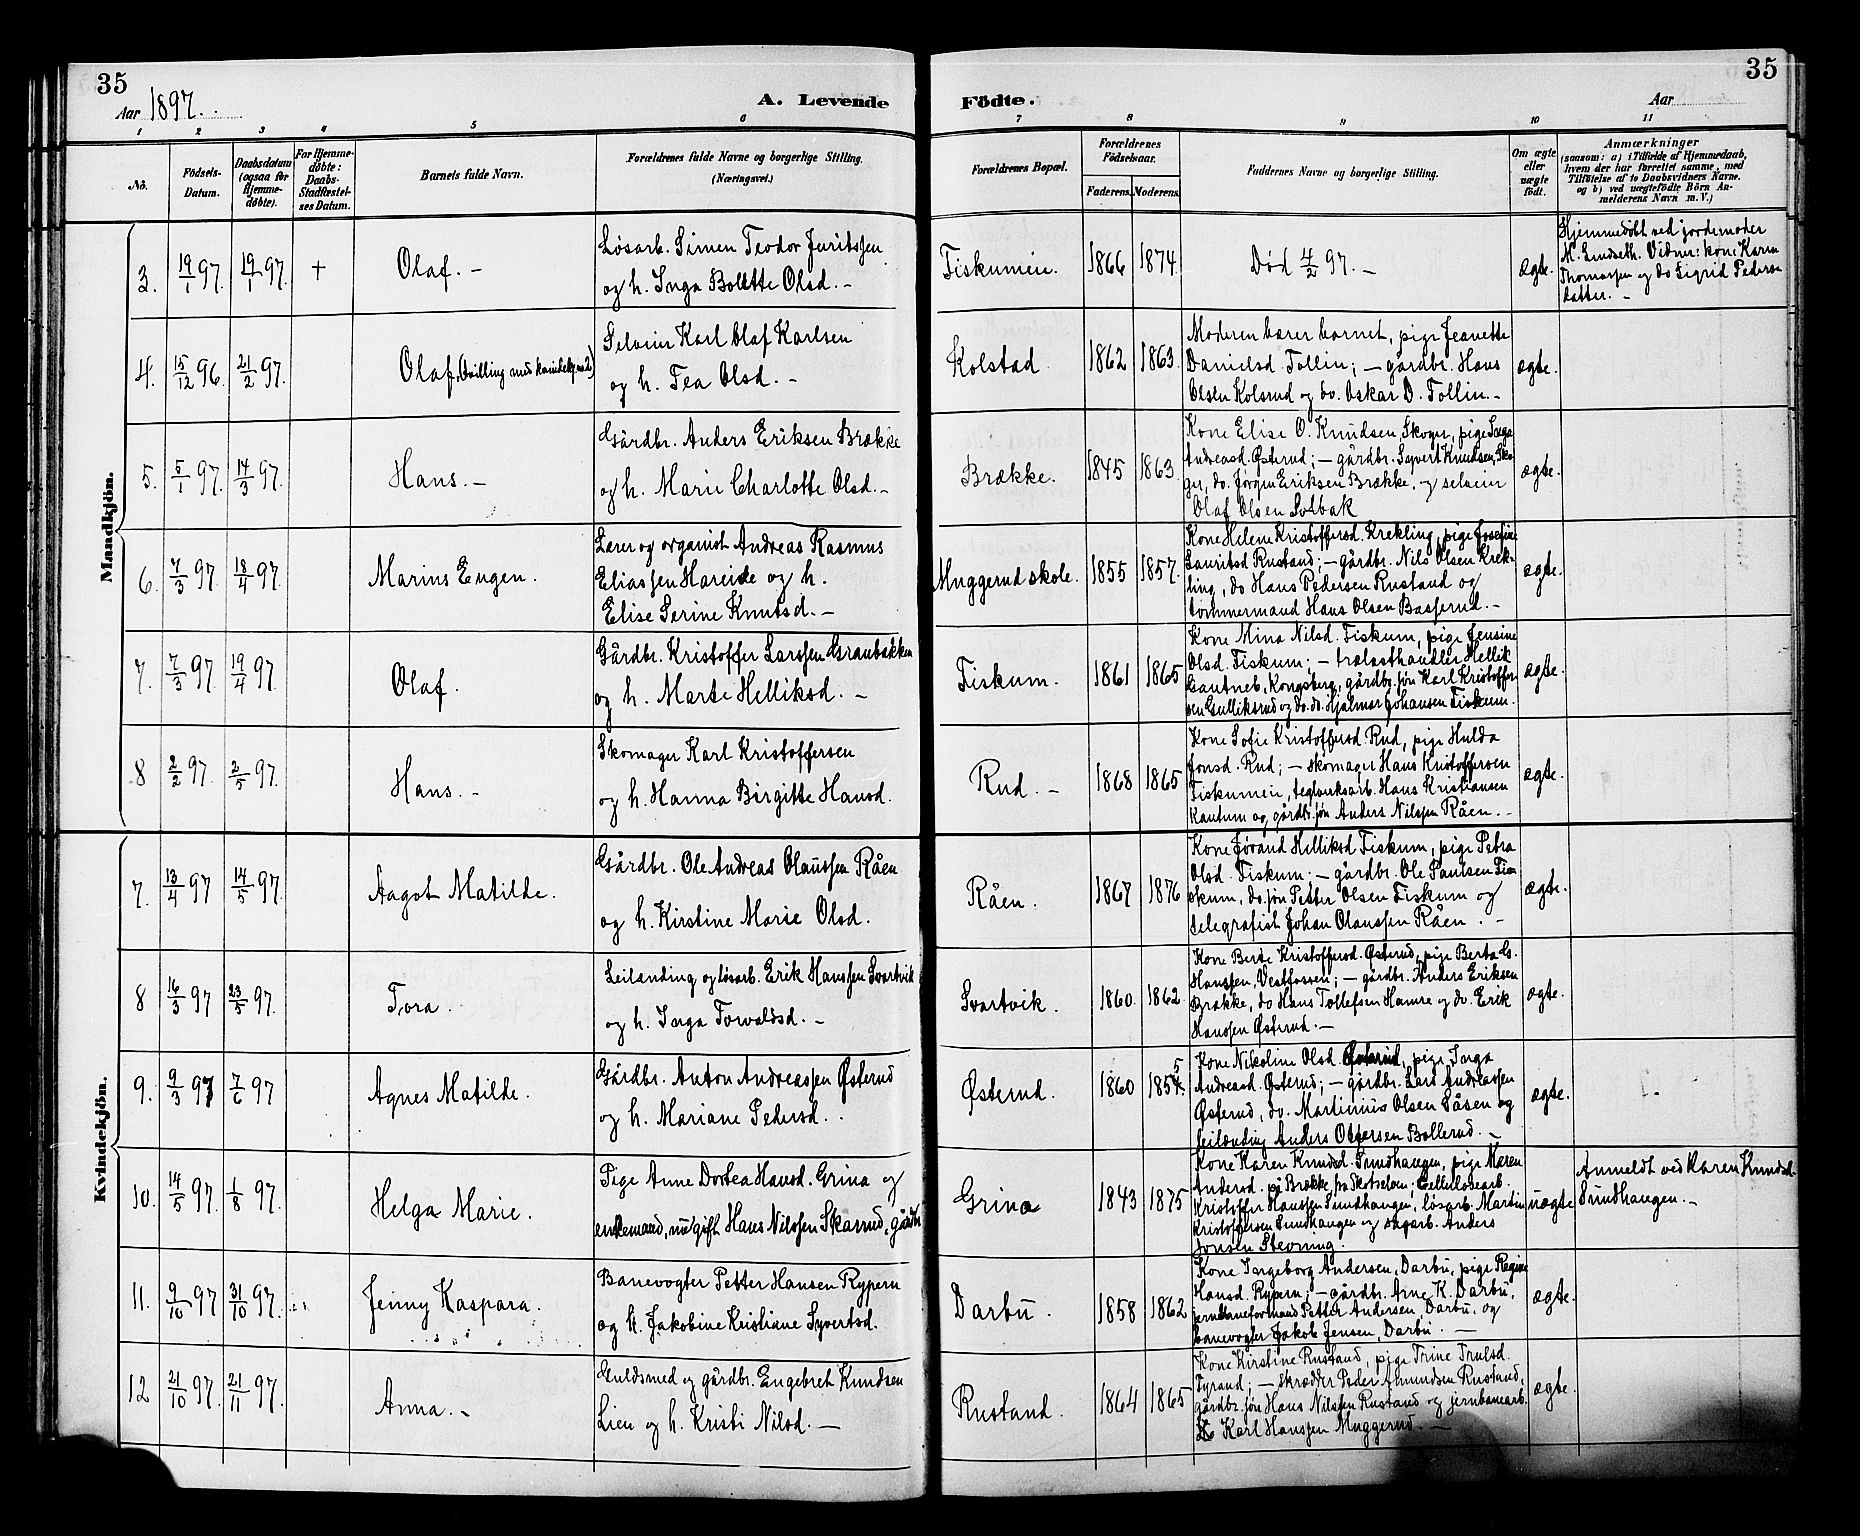 35
35
Aar 1897.
A. Levende
Födte.
Aar
1 2 3 4 5 6 7 8 9 10 11
No.
Födsels-
Datum.
Daabsdatum
(ogsaa for
Hjemme-
döbte).
For Hjemme-
döbte:
Daabs-
Stadfæstel-
ses Datum.
Barnets fulde Navn.
Forældrenes fulde Navne og borgerlige Stilling.
(Næringsvei.)
Forældrenes Bopæl.
Forældrenes
Födselsaar.
Faderens.
Moderens.
Faddernes Navne og borgerlige Stilling.
Om ægte
eller
uægte
födt.
Anmærkninger
(saasom: a) i Tilfælde af Hjemmedaab,
hvem der har forrettet samme, med
Tilföielse af to Daabsvidners Navne.
og b) ved uægtefödte Börn An-
melderens Navn m. V.)
Mandkjön.
3. 19/1 97. 19/1 97. + Olaf. —
Løsarb. Simen Teodor Juritssen
og h. Inga Bolette Olsd. —
Fiskumeie. 1866 1874
Død 4/2 97. —
ægte.
Hjemmedøbt ved jordemoder
M. Lindseth. Vidner: kone Karen
Thomassen og do Sigrid Peders-
datter. —
4. 15/12 96. 21/2 97. Olaf, (tvilling med kvindekj. no 2)
Selveier Karl Olaf Karlsen
og h. Tea Olsd. —
Kolstad. 1862 1863.
Moderen bærer barnet, pige Jeanette
Danielsd. Tollin; — gårdbr. Hans
Olsen Kolsrud og do. Oskar D. Tollin. —
ægte.
5. 5/1 97. 14/3 97. Hans. —
Gårdbr. Anders Eriksen Brække
og h. Marie Charlotte Olsd. —
Brække. 1845 1863.
Kone Elise O. Knudsen, Skoger, pige Inga
Andreasd. Østerud; — gårdbr. Syvert Knudsen, Sko-
ger, do. Jørgen Eriksen Brække, og selveier
Olaf Olsen Solbak
ægte.
6. 7/3 97. 18/4 97. Marius Eugen.
Lærer og organist Andreas Rasmus
Eliassen Hareide og h.
Elise Serine Knutsd. —
Muggerud skole. 1855 1857.
Kone Helene Kristoffersd. Krekling, pige Josefine
Lauritsd Rustand; — gårdbr. Nils Olsen Krek-
ling, do Hans Pedersen Rustand og
tømmermand Hans Olsen Basserud. —
ægte.
7. 7/3 97. 19/4 97. Olaf.
Gårdbr. Kristoffer Larssen Granbakken
og h. Marte Helliksd. —
Fiskum. 1861 1865
Kone Mina Nilsd. Fiskum, pige Jensine
Olsd. Fiskum; — trælasthandler Hellik
Gautneb, Kongsberg, gårdbr. søn Karl Kristoffer-
sen Gulliksrud og do. do. Hjalmar Johansen Fiskum.
ægte.
8 2/2 97. 2/5 97. Hans. —
Skomager Karl Kristoffersen
og h. Hanna Birgitte Hansd.
Rud. — 1868 1865
Kone Sofie Kristoffersd. Rud, pige Hulda
Jonsd. Rud; — skomager Hans Kristoffersen
Fiskumeie, teglverksarb. Hans Kristiansen
Kantum og gårdbr. søn Anders Nilssen Råen. —
ægte.
Kvindekjön.
7. 13/4 97 14/5 97. Aagot Matilde.
Gårdbr. Ole Andreas Olaussen Råen
og h. Kirstine Marie Olsd.
Råen. 1867 1876
Kone Jørand Helliksd Fiskum, pige Petra
Olsd. Fiskum. — gårdbr. Ole Paulsen Fis-
kum, do. søn Petter Olsen Fiskum og
telegrafist Johan Olaussen Råen. —
ægte.
8 16/3 97 23/5 97. Tora.
Leilending og løsarb. Erik Hanssen Svartvik
og h. Inga Torvaldsd. —
Svartvik 1860. 1862.
Kone Berte Kristoffersd. Østerud, pige Berta G.
Hanssen, Vestfossen; — gårdbr. Anders Eriksen
Brække, do Hans Tollefsen Hamre og do. Erik
Hanssen Østerud. —
ægte.
9. 9/3 97 7/6 97 Agnes Matilde.
Gårdbr. Anton Andreassen Østerud
og h. Mariane Pedersd.
Østerud. 1860 1854. 5
Kone Nikoline Olsd. Østerud, pige Inga
Andreasd. Østerud; — gårdbr. Lars Andreassen
Østerud, do. Martinius Olsen Såsen og
leilænding Anders Ottersen Bollerud. —
ægte.
10. 14/5 97. 1/8 97. Helga Marie.
Pige Anne Dortea Hansd. Grina og
enkemand, nu gift Hans Nilssen Skarrud, gårdbr
Grina 1843 1875
Kone Karen Knudsd. Sundhaugen, pige Maren
Andersd. på Brække fra Skotselven; Cellulosearb.
Kristoffer Hanssen Sundhaugen, løsarb. Martin
Kristoffersen Sundhaugen og sagarb. Anders
Jonsen Stevning.
uægte
Anmeldt ved Karen Knudsd.
Sundhaugen. —
11. 9/10 97 31/10 97. Jenny Kaspara.
Banevogter Petter Hansen Rypern
og h. Jakobine Kristiane Syvertsd.
Darbu. 1858 1862
Kone Ingeborg Andersen, Darbu, pige Regine
Hansd. Rypern; — gårdbr. Arne K. Darbu,
jernbaneformand Petter Andersen Darbu, og
banevogter Jakob Jensen, Darbu. —
ægte.
12 21/10 97. 21/11 97. Anna. —
Guldsmed og gårdbr. Engebret Knudsen
Lien og h. Kristi Nilsd. —
Rustand. 1864 1865
Kone Kirstine Rustand, pige Trine Trulsd.
Tyrand; — skrædder Peder Amundsen Rustand,
gårdbr. søn Hans Nilssen Rustand og jernbanearb.
Karl Hanssen Muggerud. —
ægte.